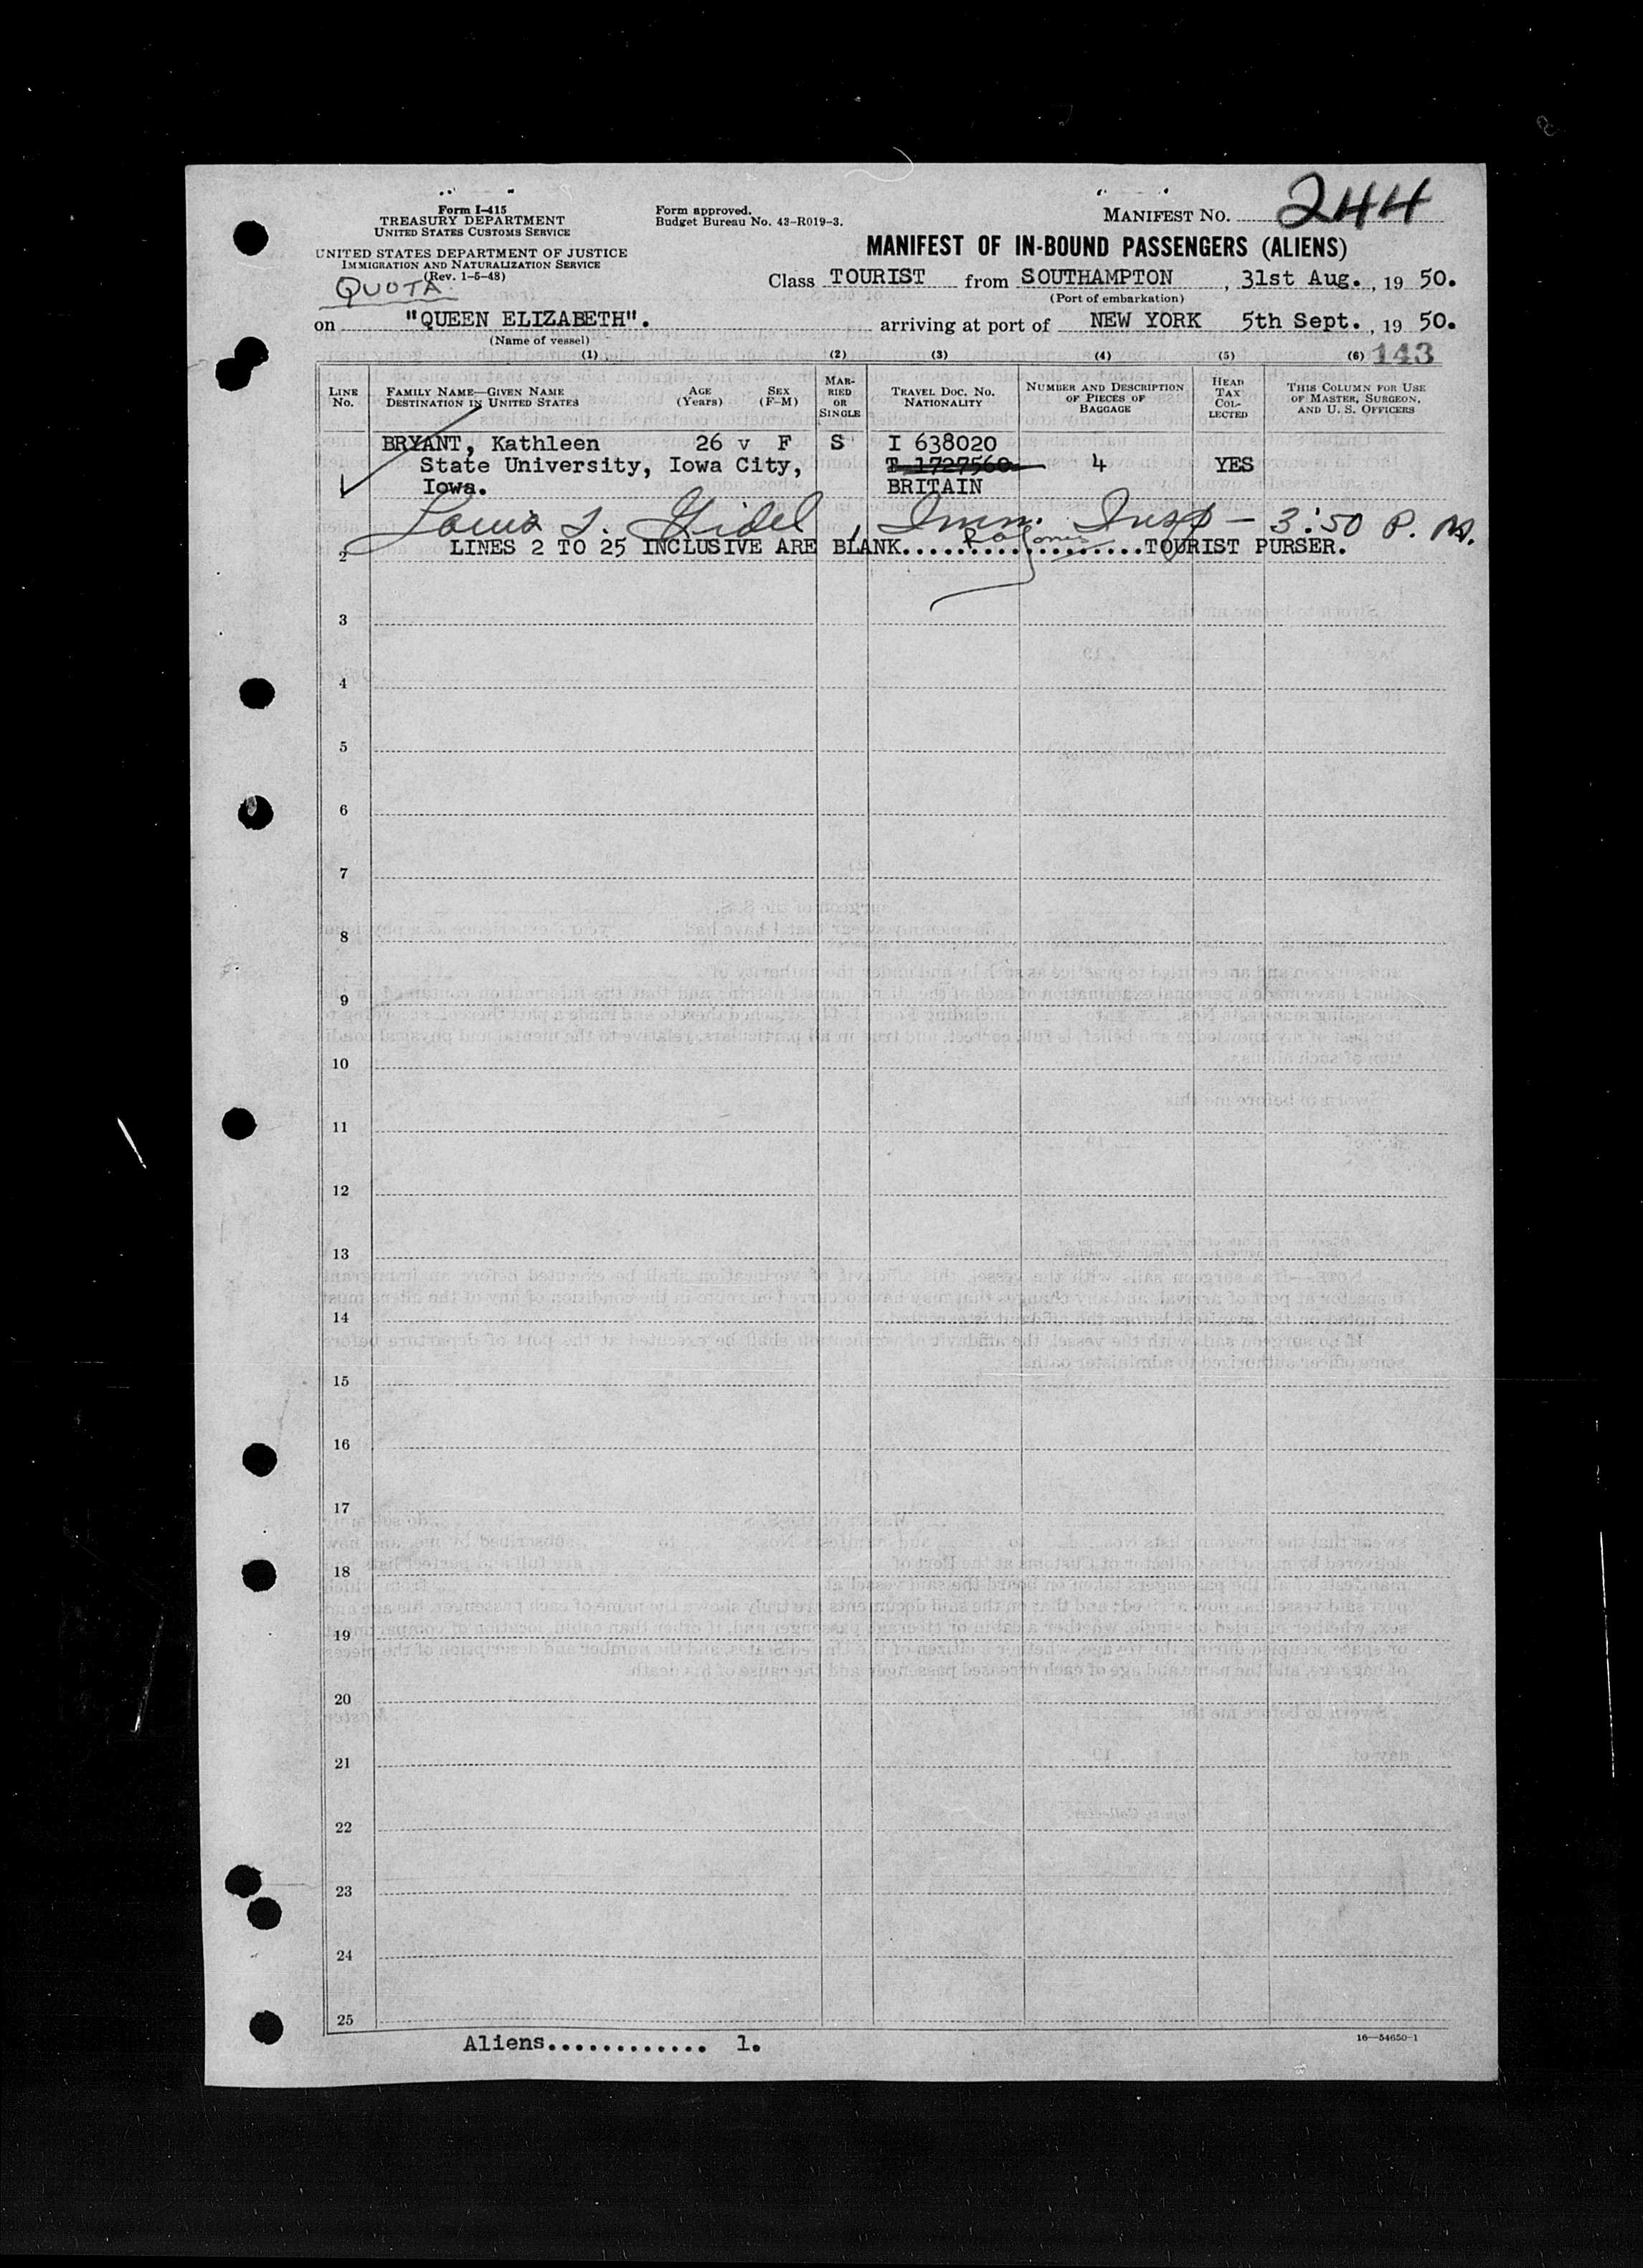 Form I-415
TREASURY DEPARTMENT
UNITED STATES CUSTOMS SERVICE
UNITED STATES DEPARTMENT OF JUSTICE
IMMIGRATION AND NATURALIZATION SERVICE
(Rev. 1-5-48)
QUOTA
Form approved.
Budget Bureau No. 43-R019-3.
MANIFEST NO. 244
MANIFEST OF IN-BOUND PASSENGERS (ALIENS)
Class TOURIST from SOUTHAMPTON, 31st Aug., 19 50.
(Port of embarkation)
on "QUEEN ELIZABETH". arriving at port of NEW YORK 5th Sept., 19 50.
(Name of vessel)
(1) (2) (3) (4) (5) (6) 143
LINE No. FAMILY NAME—GIVEN NAME DESTINATION IN UNITED STATES AGE (Years) SEX (F-M) MARRIED OR SINGLE TRAVEL DOC. NO. NATIONALITY NUMBER AND DESCRIPTION OF PIECES OF BAGGAGE HEAD TAX COLLECTED THIS COLUMN FOR USE OF MASTER, SURGEON, AND U. S. OFFICERS
BRYANT, Kathleen 26 v F S I 638020
State University, Iowa City, T 1727560 4 YES
1 Iowa. BRITAIN
Louis I. Gidel, Imm. Insp - 3:50 P. M.
2 LINES 2 TO 25 INCLUSIVE ARE BLANK....................TOURIST PURSER.
3
4
5
6
7
8
9
10
11
12
13
14
15
16
17
18
19
20
21
22
23
24
25
Aliens............ 1.
16—54650-1